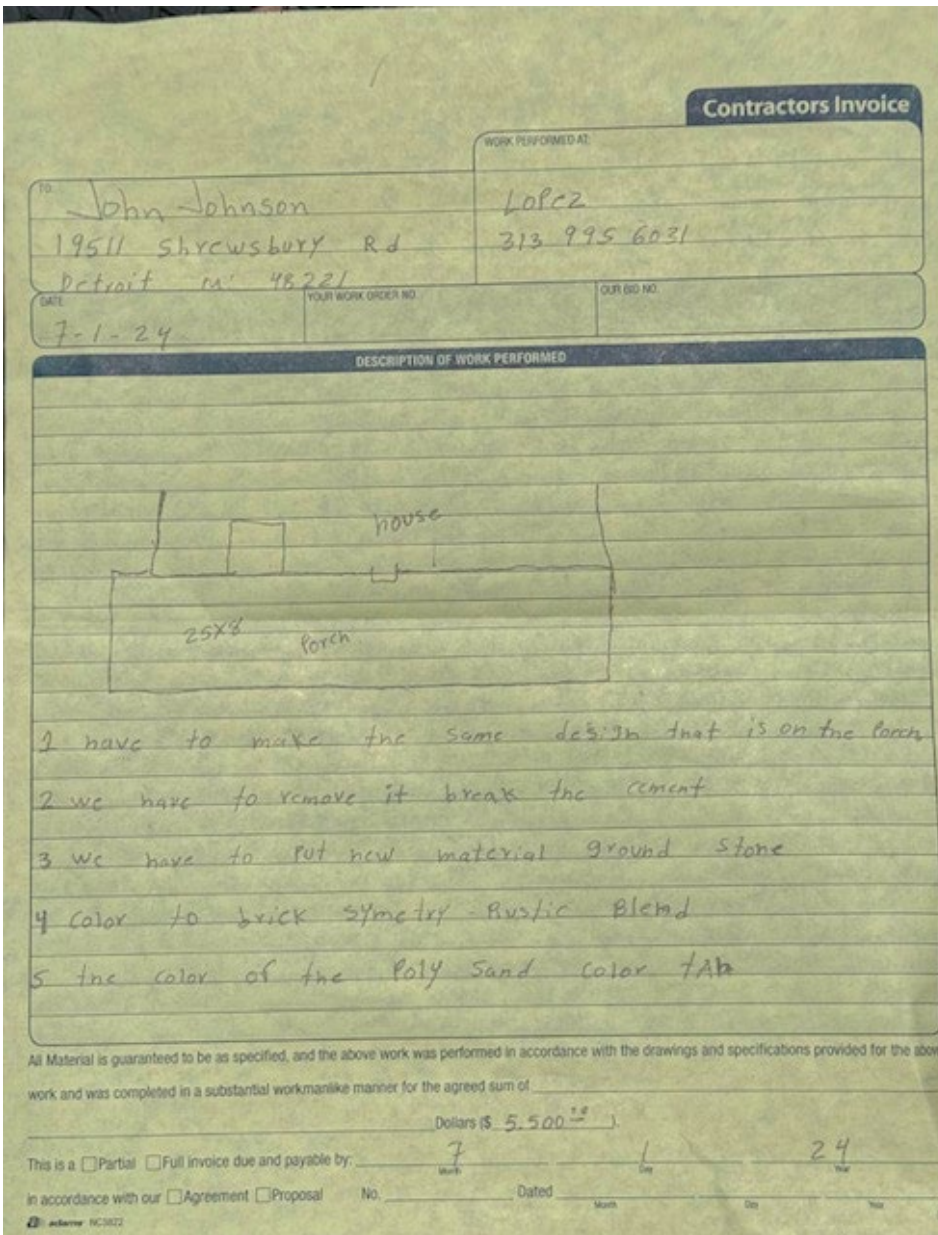 Contractors Invoice
WORK PERFORMED AT:
TO:
John Johnson
19511 Shrewsbury Rd
Detroit Mi 48221
LOPEZ
313 995 6031
DATE
7-1-24
YOUR WORK ORDER NO.
OUR BID NO.
DESCRIPTION OF WORK PERFORMED
house
25X8 Porch
1 have to make the same design that is on the Porch
2 we have to remove it break the cement
3 we have to put new material ground stone
4 color to brick symetry - Rustic Blend
5 the color of the Poly Sand color tAn
All Material is guaranteed to be as specified, and the above work was performed in accordance with the drawings and specifications provided for the abov
work and was completed in a substantial workmanlike manner for the agreed sum of
Dollars ($ 5.500 ).
This is a Partial Full invoice due and payable by: 7 1 24
Month Day Year
in accordance with our Agreement Proposal No. Dated
Month Day Year
adams NC3822